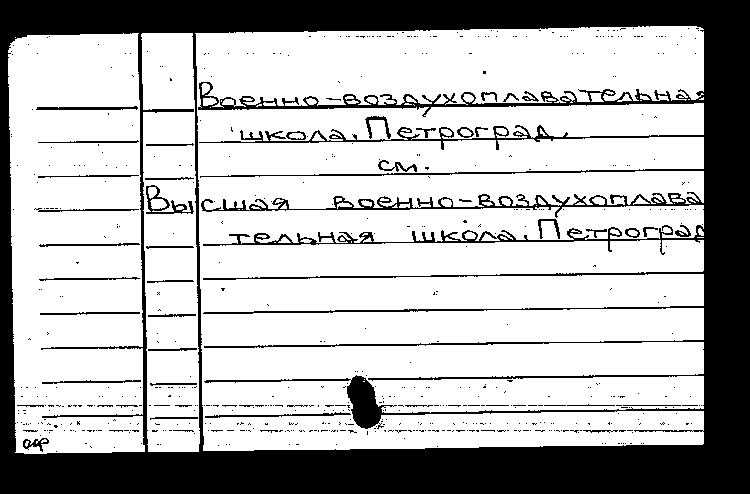 Военно-воздухоплавательная
школа. Петроград.
см.
Высшая военно-воздухоплава
тельная школа. Петроград